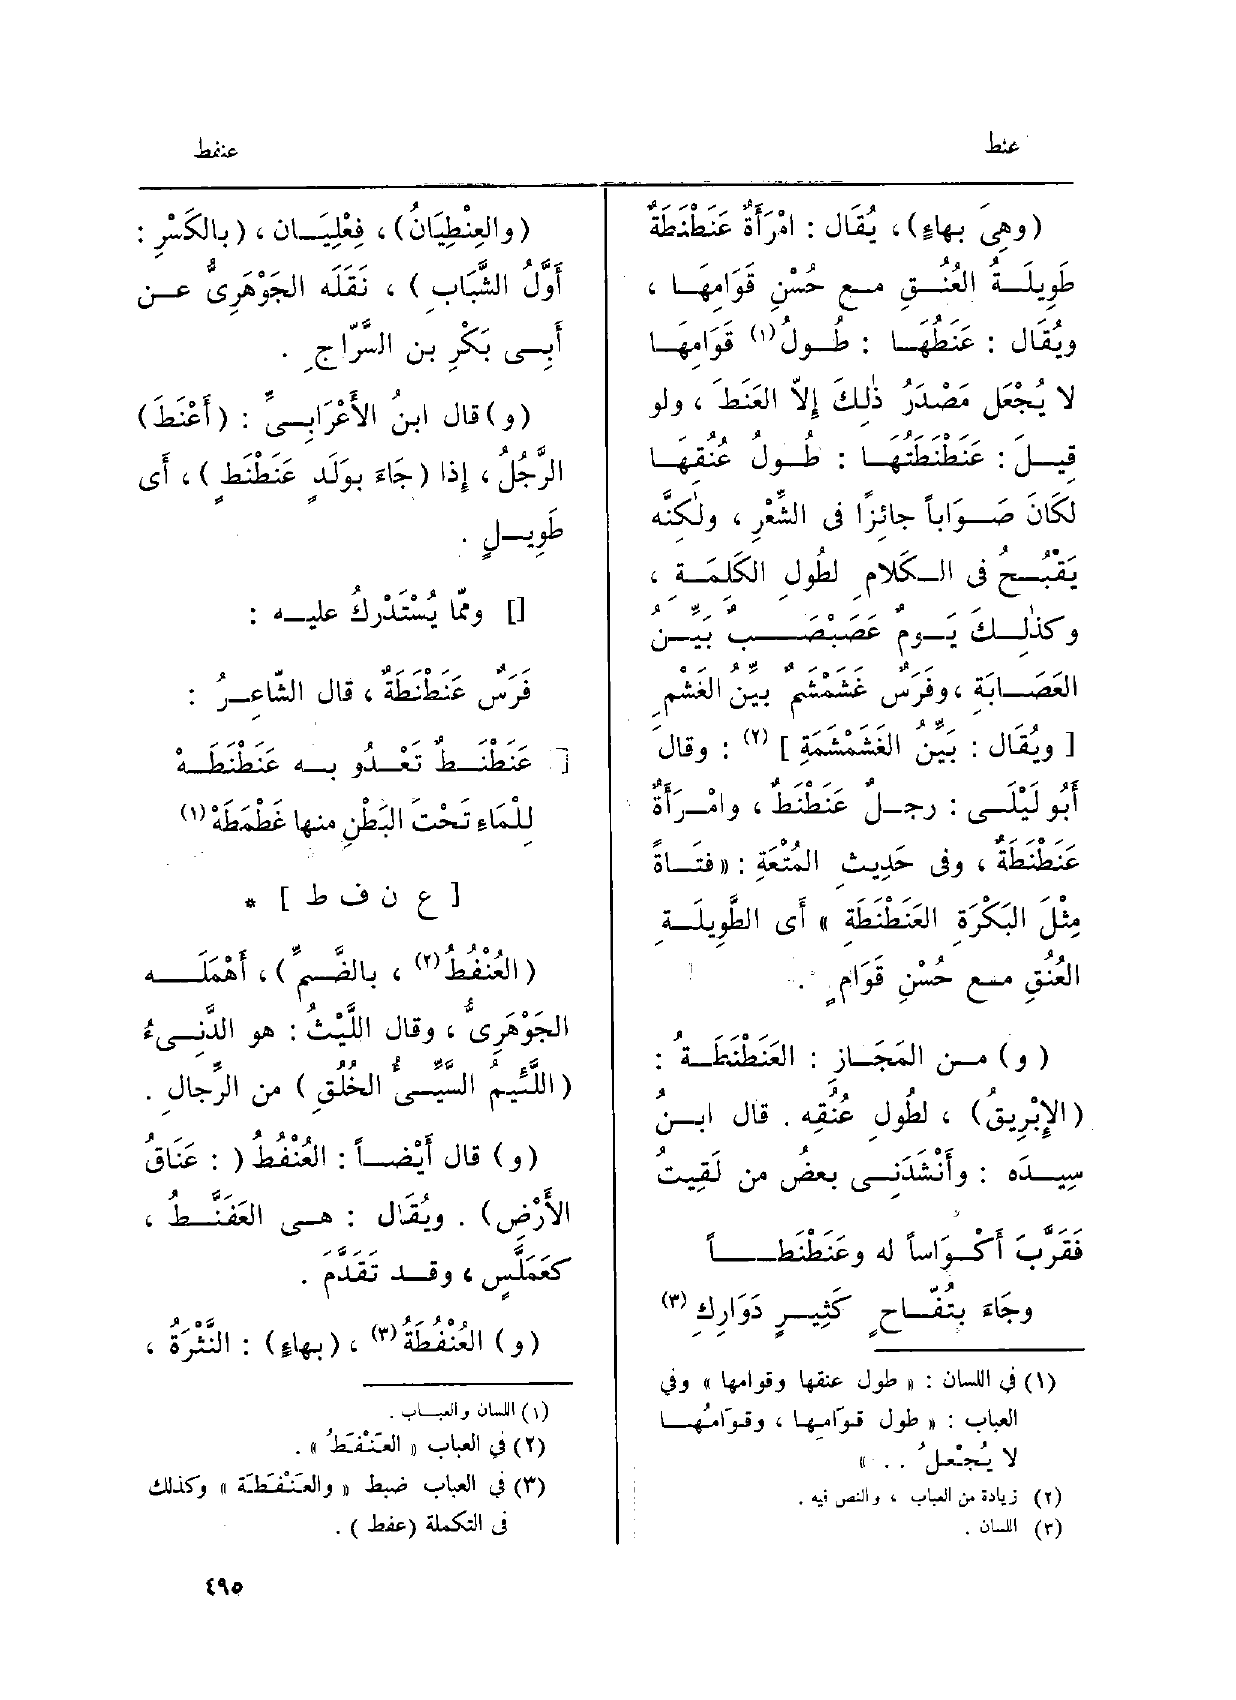 عنط
عنفط
(وهِىَ بهاءٍ)، يُقَال : امْرَأَةٌ عَنَطْنَطَةٌ
طَوِيلَـةُ العُنُـقِ مـع حُسْنِ قَوَامِهَـا ،
ويُقَال : عَنَطُهَـا : طُـولُ(١) قَوَامِهَـا
لا يُجْعَل مَصْدَرُ ذٰلِكَ إِلاّ العَنَطَ ، ولو
قِيـلَ : عَنَطْنَطَتُهَـا : طُـولُ عُنُقِهَـا
لكَانَ صَـوَاباً جائِزًا فى الشِّعْرِ ، ولٰكِنَّه
يَقْبُـحُ فى الـكَلامِ لطُولِ الكَلِمَـةِ ،
وكذٰلِـكَ يَـومٌ عَصَبْصَـبٌ بَيِّـنُ
العَصَـابَةِ ،وفَرَسٌ غَشَمْشَمٌ بيِّنُ الغَشْمِ
[ ويُقَال : بَيِّنُ الغَشَمْشَمَةِ ] (٢) : وقالَ
أَبُو لَيْلَـى : رجـلٌ عَنَطْنَطٌ ، وامْـرَأَةٌ
عَنَطْنَطَةٌ ، وفى حَدِيثِ المُتْعَةِ : «فتَـاةً
مِثْلَ البَكْرَةِ العَنَطْنَطَةِ » أى الطَّوِيلَـةِ
العُنُقِ مـع حُسْنِ قَوَامٍ .
( و ) مـن المَجَـاز : العَنَطْنَطَـةُ :
(الإِبْرِيقُ) ، لطُولِ عُنُقِه . قال ابـنُ
سِيـدَه : وأَنْشَدَنِـى بعضُ من لَقِيتُ
فَقَرَّبَ أَكْـوَاساً له وعَنَطْنَطـاً
وجَاءَ بتُفّـاحٍ كَثِيـرٍ دَوَارِكِ (٣)
(١) في اللسان : « طول عنقها وقوامها » وفي
العباب : « طول قـوامها ، وقـوامُهـا
لا يُجْعل . . »
(٢) زيادة من العباب ، والنص فيه .
(٣) اللسان .
(والعِنْطِيَانُ)، فِعْلِيَـان ، (بالكَسْرِ :
أَوَّلُ الشَّبَابِ ) ، نَقَلَه الجَوْهَرِىُّ عـن
أَبِـى بَكْرِ بن السَّرّاجِ .
(و)قال ابنُ الأَعْرَابِـىِّ : (أَعْنَطَ)
الرَّجُلُ ، إِذا (جَاءَ بوَلَدٍ عَنَطْنَطٍ ) ، أى
طَوِيـلٍ .
[] وممّا يُسْتَدْركُ عليـه :
فَرَسٌ عَنَطْنَطَةٌ ، قال الشّاعـرُ :
[ عَنَطْنَـطٌ تَعْـدُو بـه عَنَطْنَطَـهْ
لِلْمَاءِ تَحْتَ البَطْنِ منها غَطْمَطَهْ (١)
[ ع ن ف ط ] *
(العُنْفُطُ(٢) ، بالضَّـمِّ ) ، أَهْمَلَـه
الجَوْهَرِىُّ ، وقال اللَّيْثُ : هو الدَّنِـىءُ
(اللَّئِيم السَّيِّـىءُ الخُلُقِ ) من الرِّجالِ .
(و) قال أَيْضـاً : العُنْفُطُ ( : عَنَاقُ
الأَرْضِ) . ويُقَال : هـى العَفَنَّـطُ ،
كعَمَلَّسٍ ، وقـد تَقَدَّمَ .
(و) العُنْفُطَةُ(٣) ، (بهاءٍ) : النَّثْرَةُ ،
(١) اللسان والعبـاب .
(٢) في العباب « العَنْفَطُ » .
(٣) في العباب ضبط « والعَنْفَطَة » وكذلك
فى التكملة (عفط ) .
٤٩٥